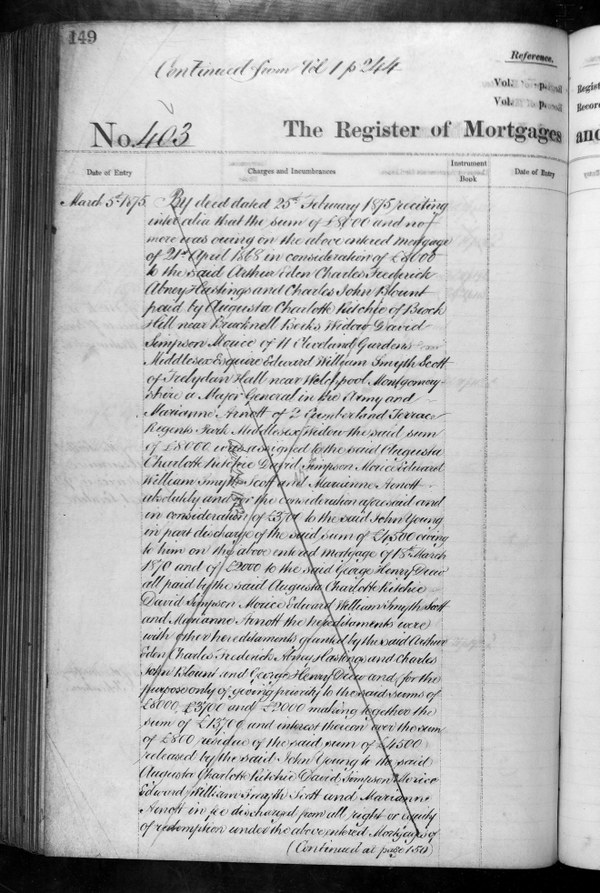 149
Continued from Vol 1 p 244
Reference.
Vol. p.
Vol. p.
No. 403 The Register of Mortgages
and
Date of Entry
Charges and Incumbrances
Instrument
Book
Date of Entry
March 5th 1875. By deed dated 25th February 1875 reciting
inter alia that the sum of £8000 and no
more was owing on the above entered mortgage
of 21st April 1868 in consideration of £8000
to the said Arthur Eden Charles Frederick
Abney Hastings and Charles John Blount
paid by Augusta Charlotte Ritchie of Brock
Hill near Bracknell Berks Widow David
Simpson Morice of 11 Cleveland Gardens
Middlesex Esquire Edward William Smyth Scott
of Trelydan Hall near Welchpool Montgomery-
shire a Major General in the Army and
Marianne Arnott of 2 Cumberland Terrace
Regents Park Middlesex Widow the said sum
of £8000 was assigned to the said Augusta
Charlotte Ritchie David Simpson Morice Edward
William Smyth Scott and Marianne Arnott
absolutely and for the consideration aforesaid and
in consideration of £3700 to the said John Young
in part discharge of the said sum of £4500 owing
to him on the above entered mortgage of 18th March
1870 and of £2000 to the said George Henry Drew
all paid by the said Augusta Charlotte Ritchie
David Simpson Morice Edward William Smyth Scott
and Marianne Arnott the hereditaments were
with other hereditaments granted by the said Arthur
Eden Charles Frederick Abney Hastings and Charles
John Blount and George Henry Drew and (for the
purpose only of giving priority to the said sums of
£8000, £3700 and £2000 making together the
sum of £13700 and interest thereon over the sum
of £800 residue of the said sum of £4500
released by the said John Young to the said
Augusta Charlotte Ritchie David Simpson Morice
Edward William Smyth Scott and Marianne
Arnott in fee discharged from all right or equity
of redemption under the above entered Mortgages of
(Continued at page 150)